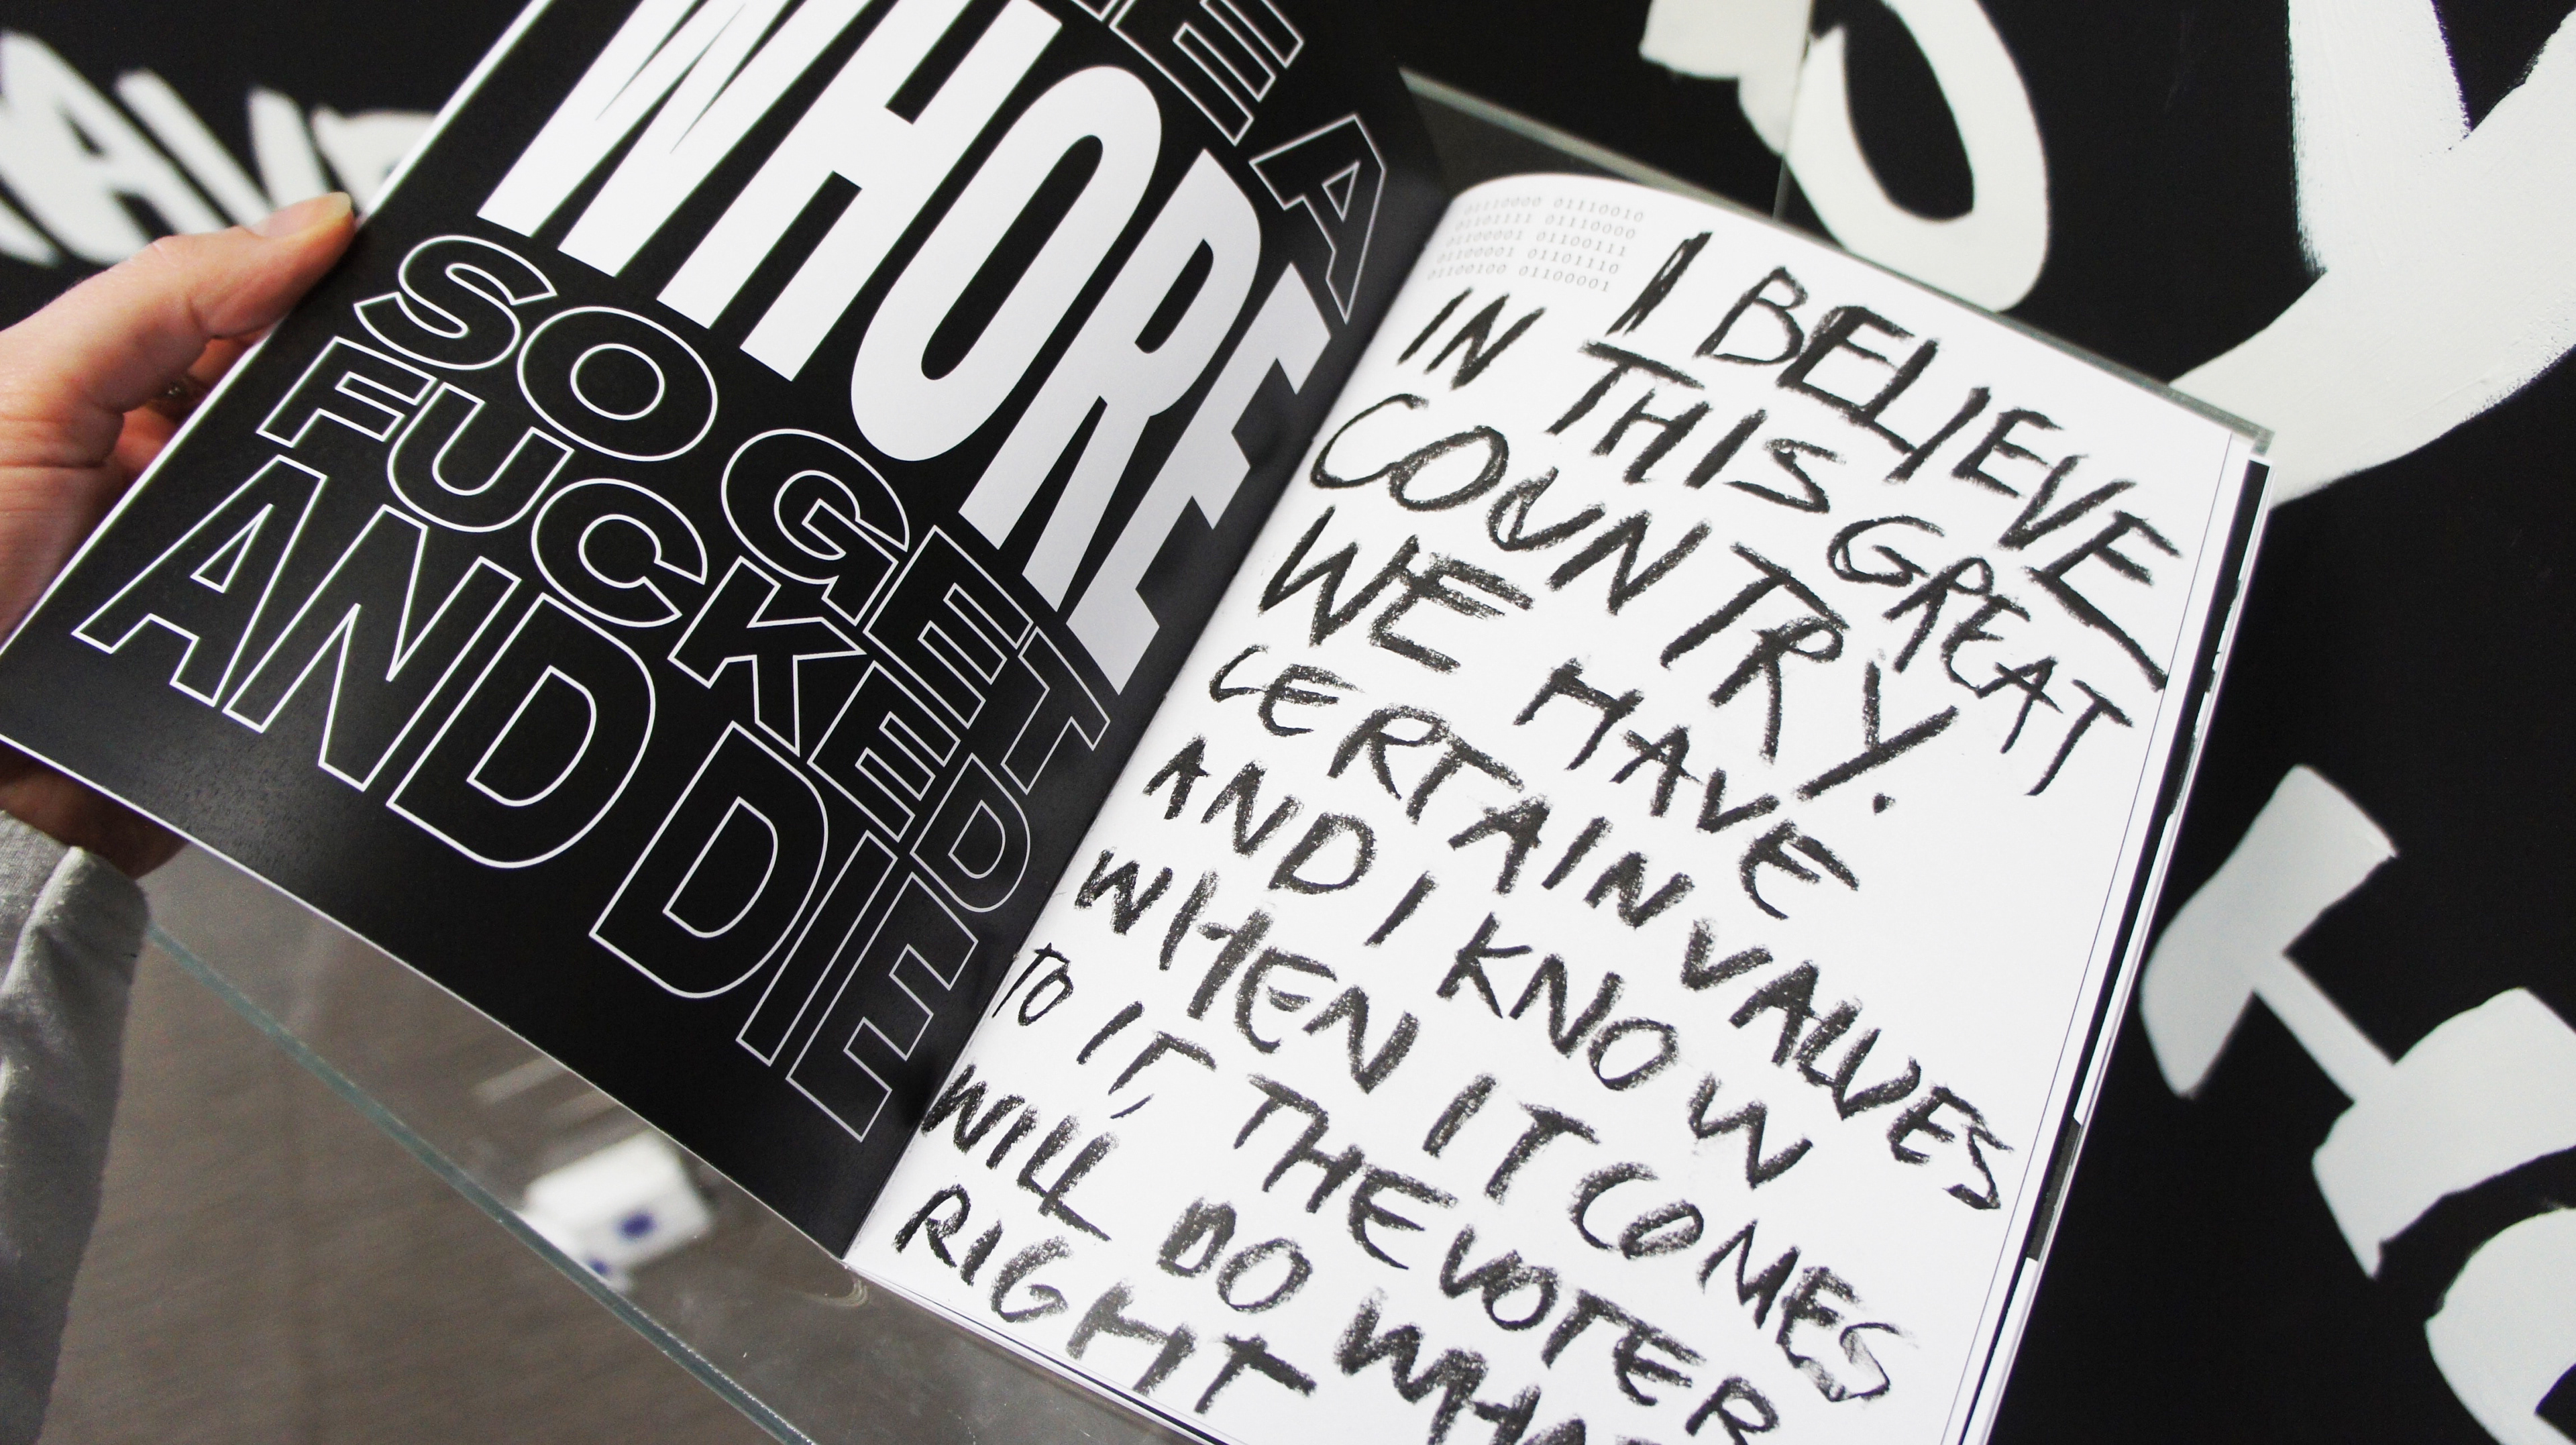 A
WHORE
SO GET
FUCKED
AND DIE
01110000 01110010
01101111 01110000
01100001 01100111
01100001 01101110
01100100 01100001
I BELIEVE
IN THIS GREAT
COUNTRY.
WE HAVE
CERTAIN VALUES
AND I KNOW
WHEN IT COMES
TO IT, THE VOTER
WILL DO
RIGHT